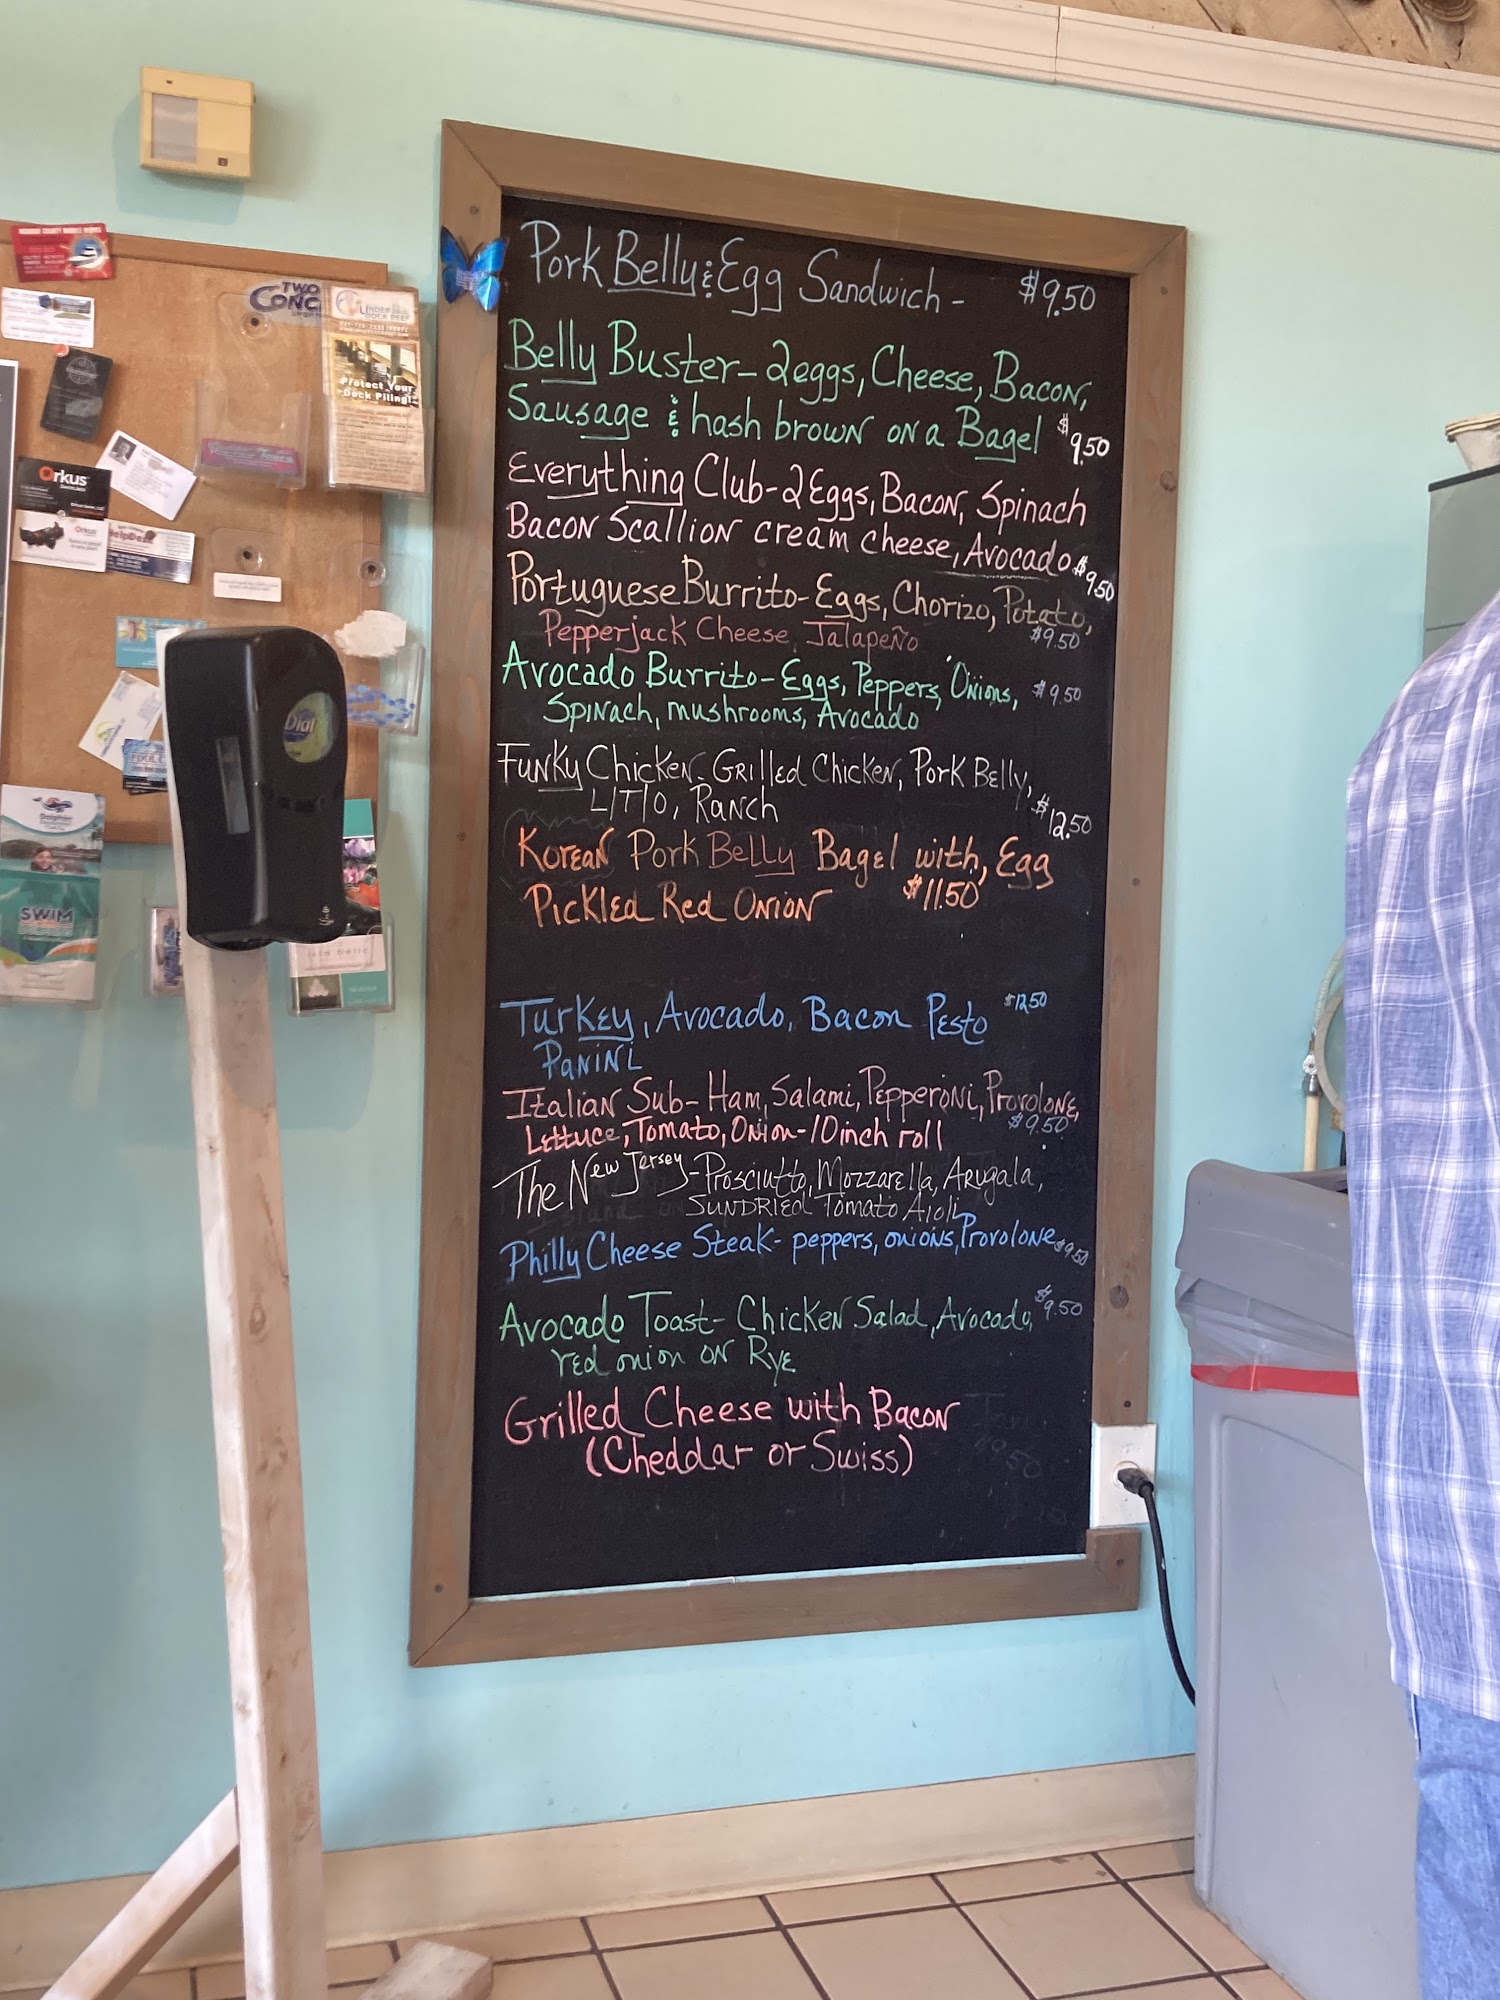 Pork Belly & Egg Sandwich - $9.50
Belly Buster - 2eggs, Cheese, Bacon,
Sausage & hash brown on a Bagel $9.50
Everything Club - 2 Eggs, Bacon, Spinach
Bacon Scallion cream cheese, Avocado $9.50
Portuguese Burrito - Eggs, Chorizo, Potato,
Pepperjack Cheese, Jalapeño $9.50
Avocado Burrito - Eggs, Peppers, Onions, $9.50
Spinach, mushrooms, Avocado
Funky Chicken - Grilled Chicken, Pork Belly,
L/T/O, Ranch $12.50
Korean Pork Belly Bagel with, Egg
Pickled Red Onion $11.50
Turkey, Avocado, Bacon Pesto $12.50
Panini
Italian Sub - Ham, Salami, Pepperoni, Provolone,
Lettuce, Tomato, Onion - 10 inch roll $9.50
The New Jersey - Prosciutto, Mozzarella, Arugala,
Sundried Tomato Aioli
Philly Cheese Steak - peppers, onions, Provolone $9.50
Avocado Toast - Chicken Salad, Avocado, $9.50
red onion on Rye
Grilled Cheese with Bacon
(Cheddar or Swiss)
TWO
CONC
UNDER
DOCK REEF
Protect Your
Dock Piling!
Orkus
Orkus
Dial
Dolphin
SWIM